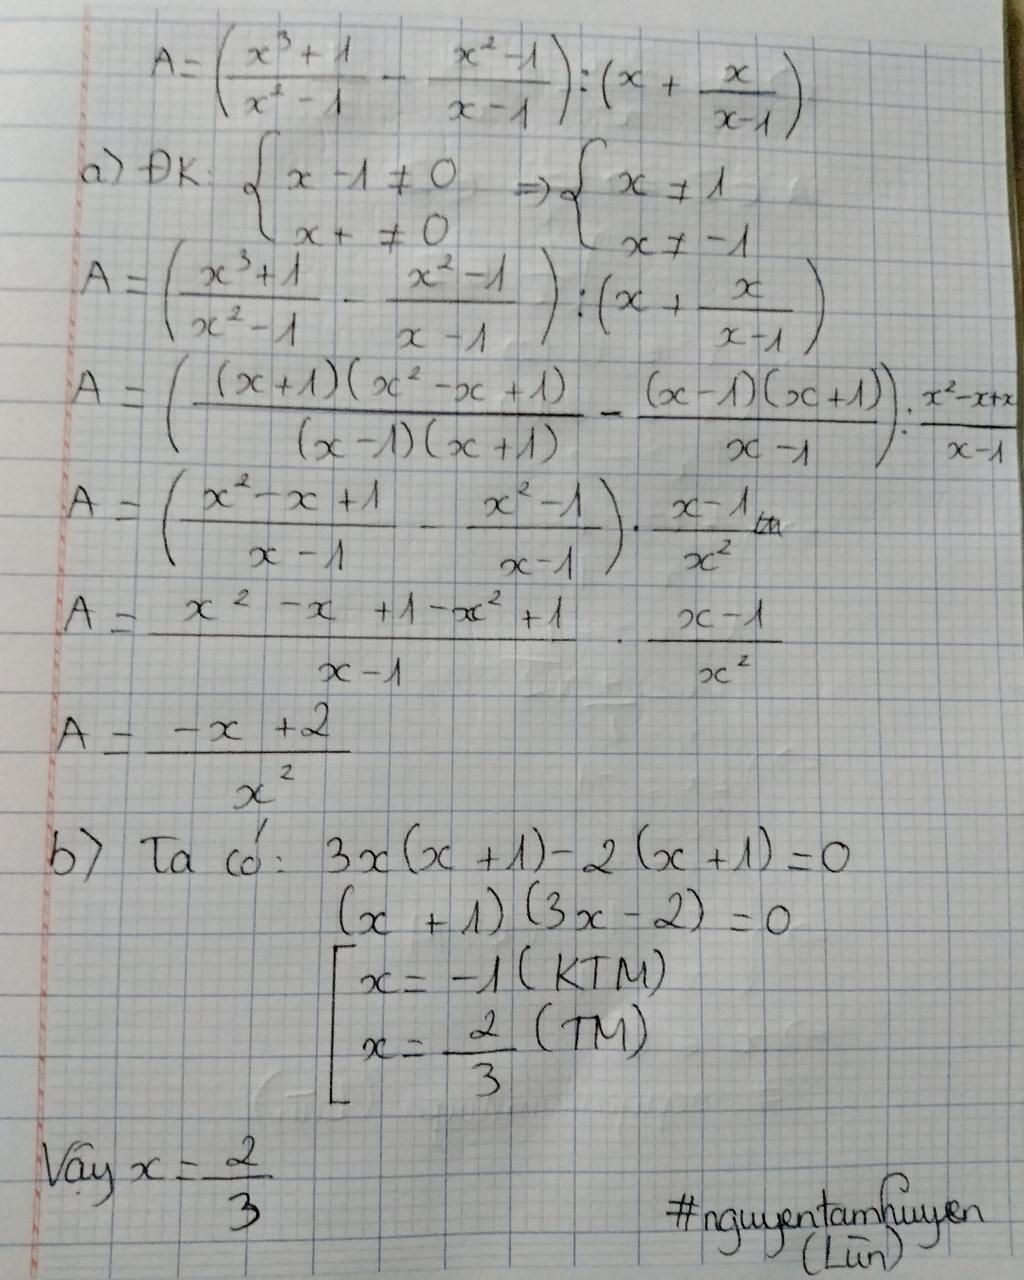 A = (\frac{x³ + 1}{x² - 1} - \frac{x² - 1}{x - 1}) : (x + \frac{x}{x-1})
a) ĐK: { x - 1 ≠ 0 => { x ≠ 1
x + ≠ 0 x ≠ -1
A = (\frac{x³ + 1}{x² - 1} - \frac{x² - 1}{x - 1}) : (x + \frac{x}{x - 1})
A = (\frac{(x+1)(x² - x + 1)}{(x - 1)(x + 1)} - \frac{(x - 1)(x + 1)}{x - 1}) : \frac{x² - x + x}{x - 1}
A = (\frac{x² - x + 1}{x - 1} - \frac{x² - 1}{x - 1}) . \frac{x - 1}{x²}
A = \frac{x² - x + 1 - x² + 1}{x - 1} . \frac{x - 1}{x²}
A = \frac{-x + 2}{x²}
b) Ta có: 3x(x + 1) - 2(x + 1) = 0
(x + 1)(3x - 2) = 0
[ x = -1 (KTM)
x = \frac{2}{3} (TM)
Vậy x = \frac{2}{3}
#nguyentamhuyen
(Lùn)